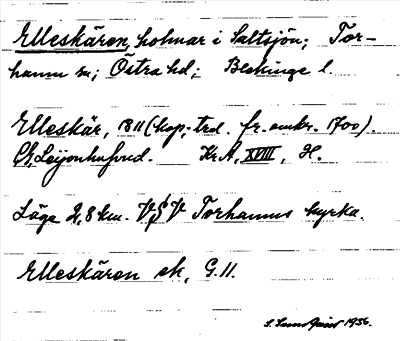 Elleskären, holmar i Saltsjön; Tor-
hamn sn; Östra hd; Blekinge l.
Elleskär, 1811 (kop; trol. fr. omkr. 1700).
Leijonhufvud. KrA, XVIII, H.
Läge 2,8 km. V Torhamns kyrka.
Elleskären ek, G.11.
1956.